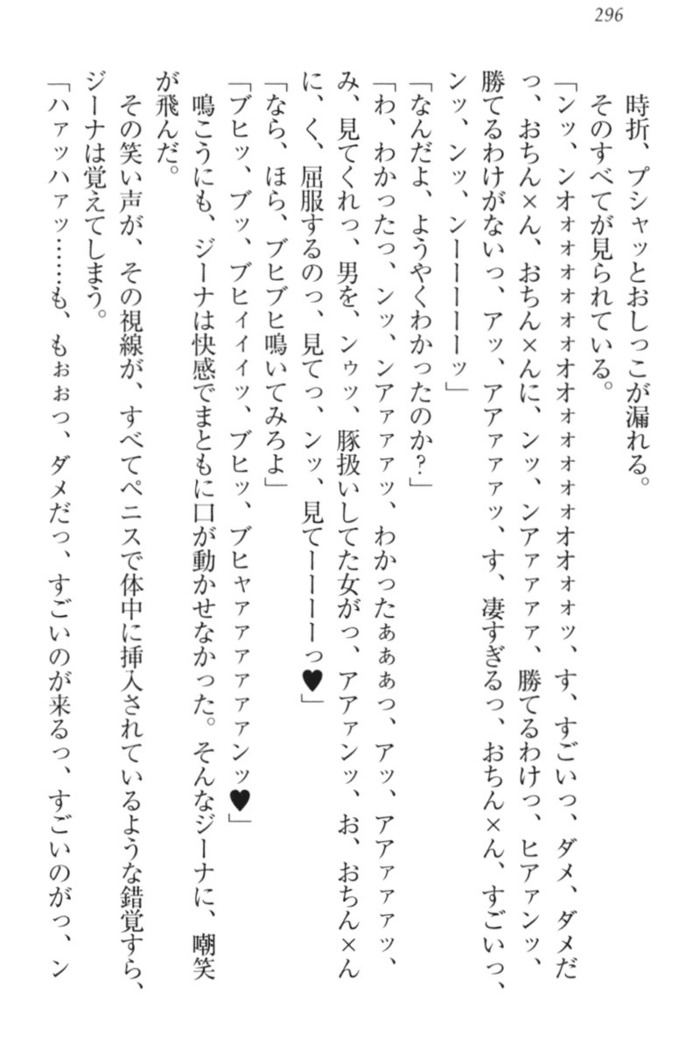 296
時折、プシャッとおしっこが漏れる。
そのすべてが見られている。
「ンッ、ンオォォォォォオオォォォォオオォォッ、す、すごいっ、ダメ、ダメだ
っ、おちん×ん、おちん×んに、ンッ、ンアァァァァ、勝てるわけっ、ヒアァンッ、
勝てるわけがないっ、アッ、アアァァァッ、す、凄すぎるっ、おちん×ん、すごいっ、
ンッ、ンッ、ンーーーーーッ」
「なんだよ、ようやくわかったのか?」
「わ、わかったっ、ンッ、ンアァァァッ、わかったぁぁぁっ、アッ、アアァァァァッ、
み、見てくれっ、男を、ンゥッ、豚扱いしてた女がっ、アアァンッ、お、おちん×ん
に、く、屈服するのっ、見てっ、ンッ、見てーーーーっ♥」
「なら、ほら、ブヒブヒ鳴いてみろよ」
「ブヒッ、ブッ、ブヒィィィッ、ブヒッ、ブヒャァァァァァァンッ♥」
鳴こうにも、ジーナは快感でまともに口が動かせなかった。そんなジーナに、嘲笑
が飛んだ。
その笑い声が、その視線が、すべてペニスで体中に挿入されているような錯覚すら、
ジーナは覚えてしまう。
「ハァッハァッ……も、もぉぉっ、ダメだっ、すごいのが来るっ、すごいのがっ、ン